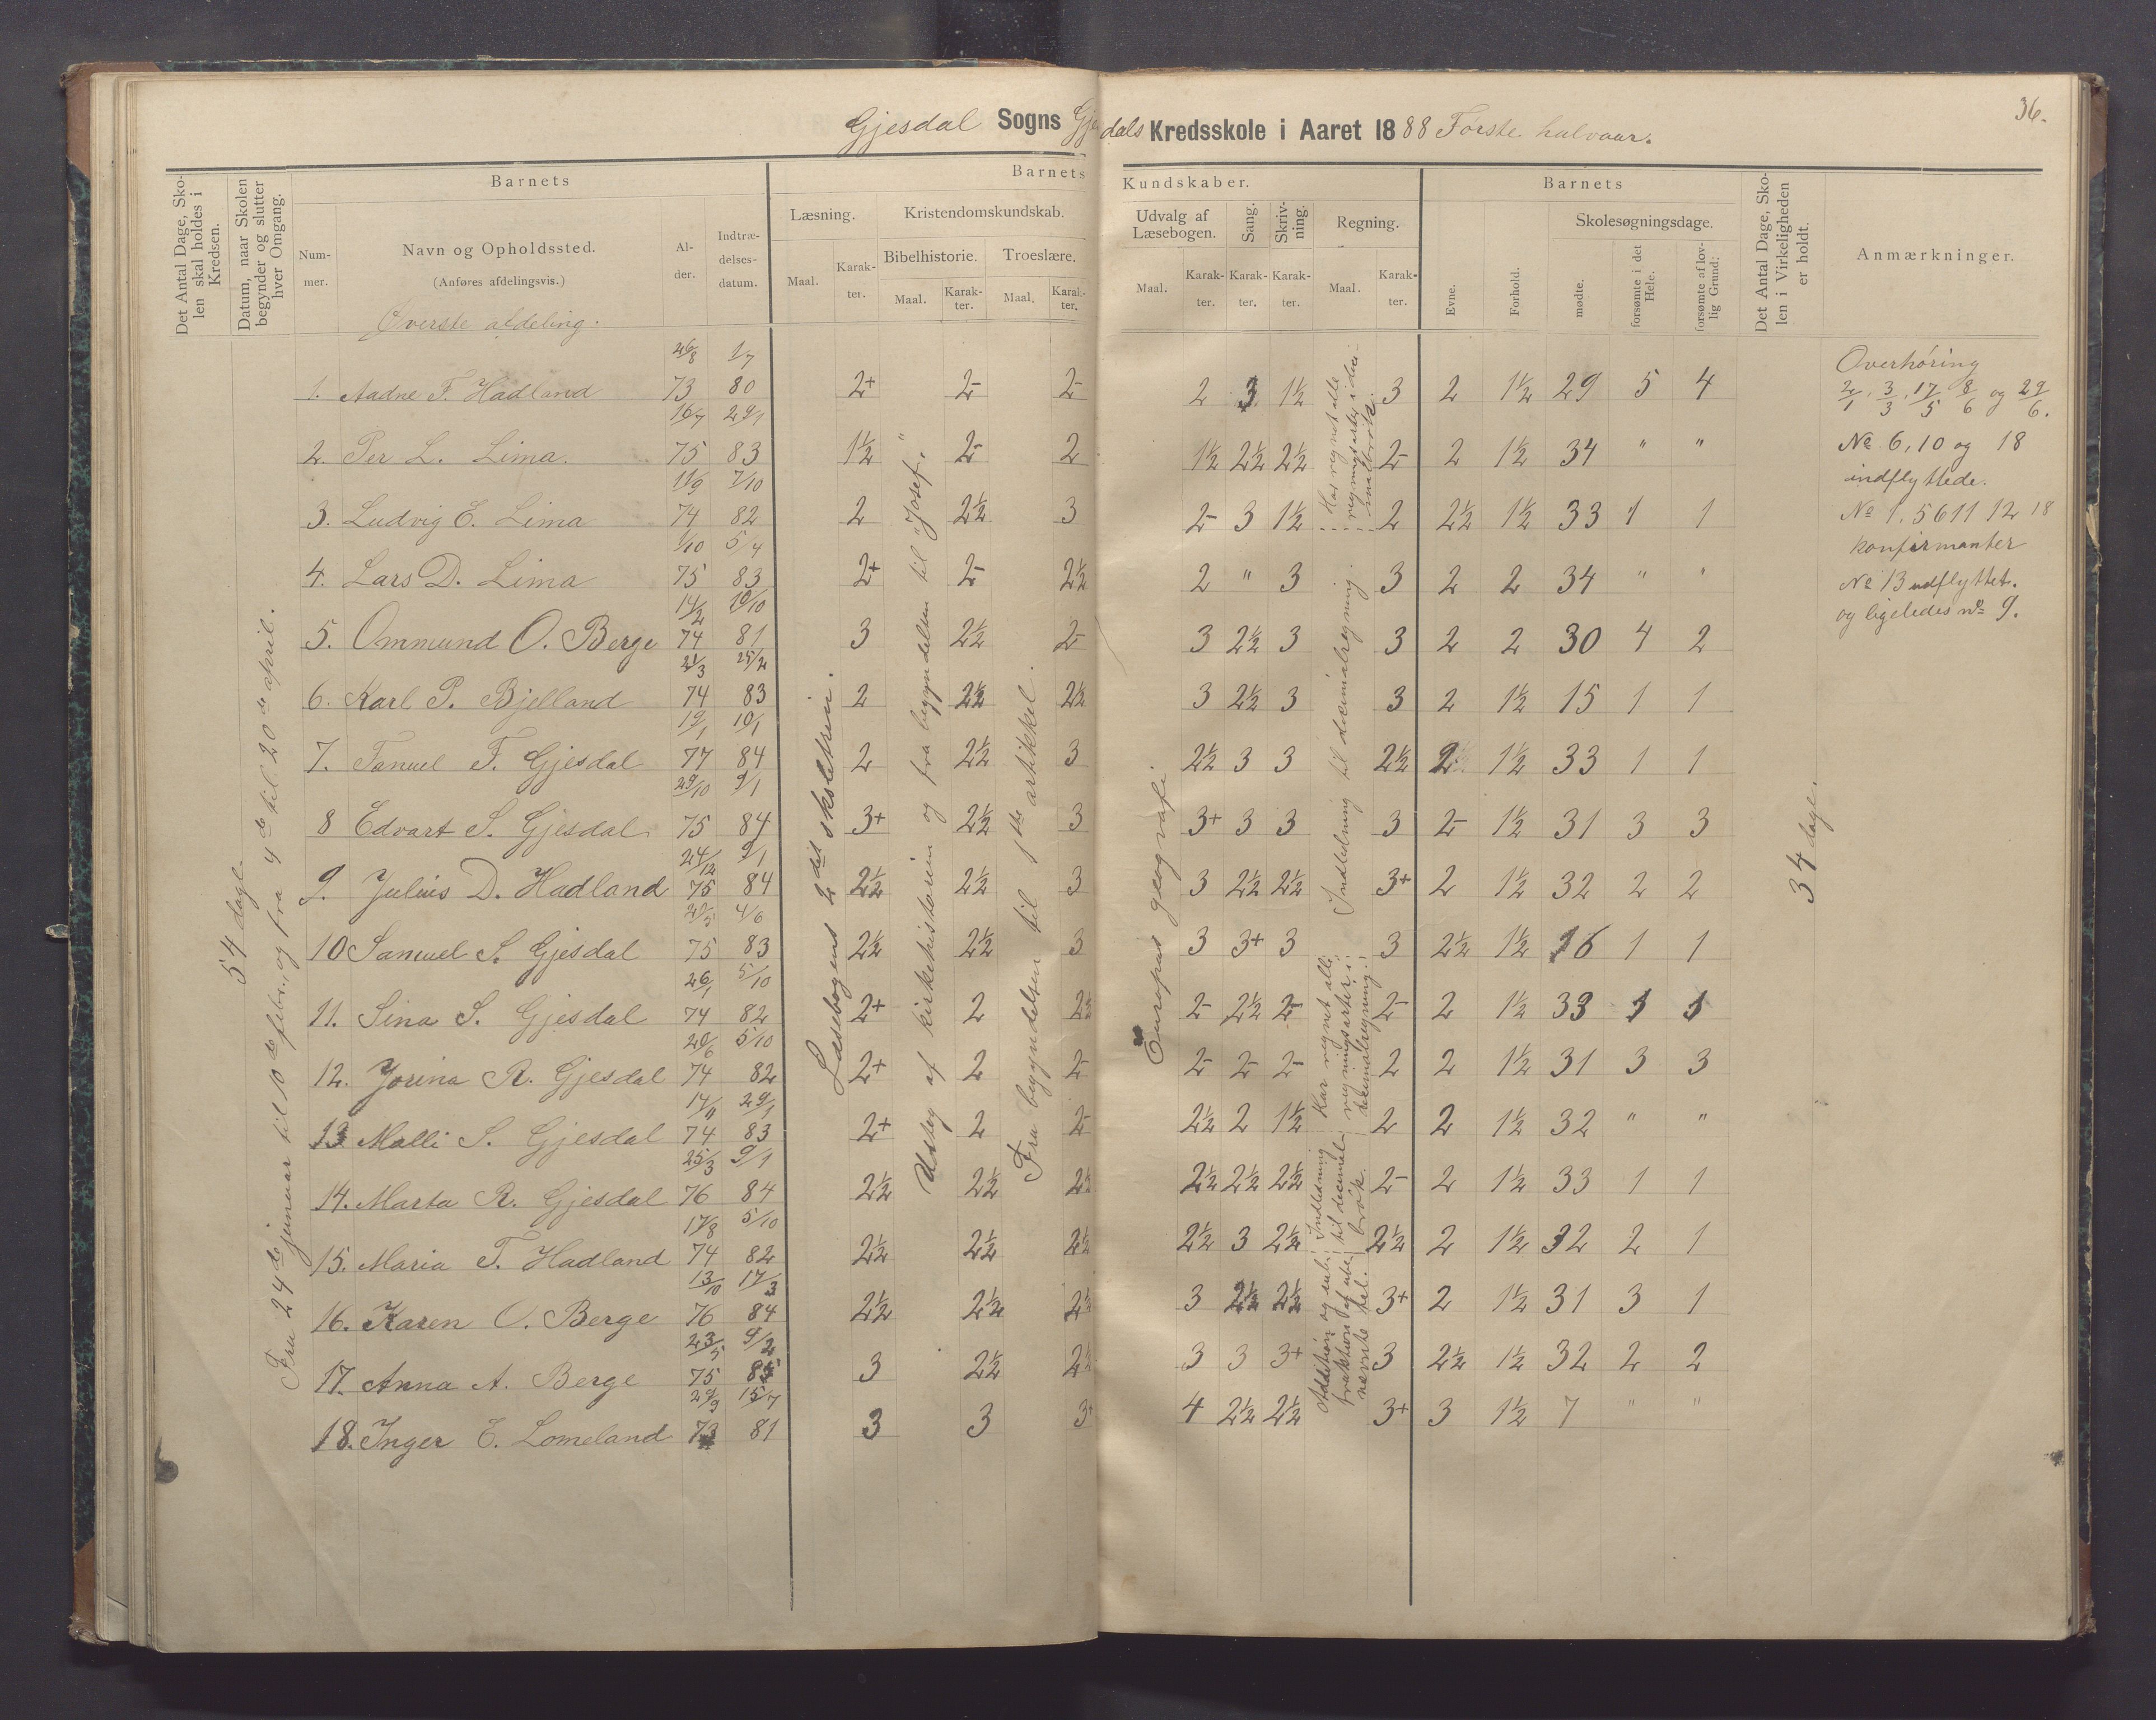 36.
Gjesdal Sogns Gjesdals Kredsskole i Aaret 1888 Første halvaar.
Det Antal Dage, Skolen skal holdes i Kredsen.
Datum, naar Skolen begynder og slutter hver Omgang.
Barnets
Nummer.
Navn og Opholdssted.
(Anføres afdelingsvis.)
Alder.
Indtrædelsesdatum.
Barnets Kundskaber.
Læsning.
Maal. Karakter.
Kristendomskundskab.
Bibelhistorie.
Maal. Karakter.
Troeslære.
Maal. Karakter.
Udvalg af Læsebogen.
Maal. Karakter.
Sang.
Karakter.
Skrivning.
Karakter.
Regning.
Maal. Karakter.
Barnets
Evne.
Forhold.
Skolesøgningsdage.
mødte.
forsømte i det Hele.
forsømte af lovlig Grund.
Det Antal Dage, Skolen i Virkeligheden er holdt.
Anmærkninger.
Øverste afdeling.
54 dage.
Fra 24de januar til 10de febr., og fra 4de til 20de april.
1. Aadne F. Hadland 26/8 73 1/7 80 2+ 2- 2- 2 3 1½ 3 2 1½ 29 5 4
2. Per L. Lima. 16/7 75 29/1 83 1½ 2- 2 1½ 2½ 2½ 2- 2 1½ 34 " "
3. Ludvig E. Lima 11/9 74 7/10 82 2 2½ 3 2- 3 1½ 2 2½ 1½ 33 1 1
4. Lars D. Lima 1/10 75 5/4 83 2+ 2- 2½ 2 " 3 3 2 2 34 " "
5. Ommund O. Berge 14/2 74 10/10 81 3 2½ 2- 3 2½ 3 3 2 2 30 4 2
6. Karl P. Bjelland 21/3 74 25/2 83 2 2½ 2½ 3 2½ 3 3 2 1½ 15 1 1
7. Tanuel F. Gjesdal 19/1 77 10/1 84 2 2½ 3 2½ 3 3 2½ 2 1½ 33 1 1
8 Edvart S. Gjesdal 29/10 75 9/1 84 3+ 2½ 3 3+ 3 3 3 2- 1½ 31 3 3
9. Julius D. Hadland 24/12 75 9/1 84 2½ 2½ 3 3 2½ 2½ 3+ 2 1½ 32 2 2
10 Samuel S. Gjesdal 75 4/6 83 2½ 2½ 3 3 3+ 3 3 2½ 1½ 16 1 1
11. Sina S. Gjesdal 26/1 74 5/10 82 2+ 2 2½ 2- 2½ 2- 2- 2 1½ 33 1 1
12. Jorina R. Gjesdal 20/6 74 5/10 82 2+ 2 2- 2- 2- 2- 2 2 1½ 31 3 3
13 Malli S. Gjesdal 14/11 74 29/1 83 2+ 2 2- 2½ 2 1½ 2 2 1½ 32 " "
14. Marta R. Gjesdal 25/3 76 9/1 84 2½ 2½ 2½ 2½ 2½ 2½ 2- 2 1½ 33 1 1
15. Maria T. Hadland 17/8 74 5/10 82 2½ 2½ 2½ 2½ 3 2½ 2½ 2 1½ 32 2 1
16. Karen O. Berge 13/10 76 17/3 84 2½ 2½ 2½ 3 2½ 2½ 3+ 2 1½ 31 3 1
17. Anna A. Berge 23/5 75 9/2 85 3 2½ 2½ 3 3 3+ 3 2½ 1½ 32 2 2
18. Inger E. Lomeland 29/9 73 15/7 81 3 3 3 4 2½ 2½ 3+ 3 1½ 7 " "
Læsebogens 2det skoletrin.
Udtog af kirkehistorien og fra begyndelsen til "Josef."
Fra begyndelsen til 1ste artikkel.
Europas geografi.
Har regnet alle regningsarter i decimalbrøk.
Indledning til decimalregning.
Har regnet alle regningsarter i decimalregning.
Indledning til decimalbrøk.
Addition og subtraktion af ubenævnte tal.
34 dage.
Overhøring
2/1, 3/3, 17/5, 8/6 og 29/6.
No 6, 10 og 18
indflyttede.
No 1. 5 6 11 12 18
konfirmanter
No 13 udflyttet.
og ligeledes no 9.